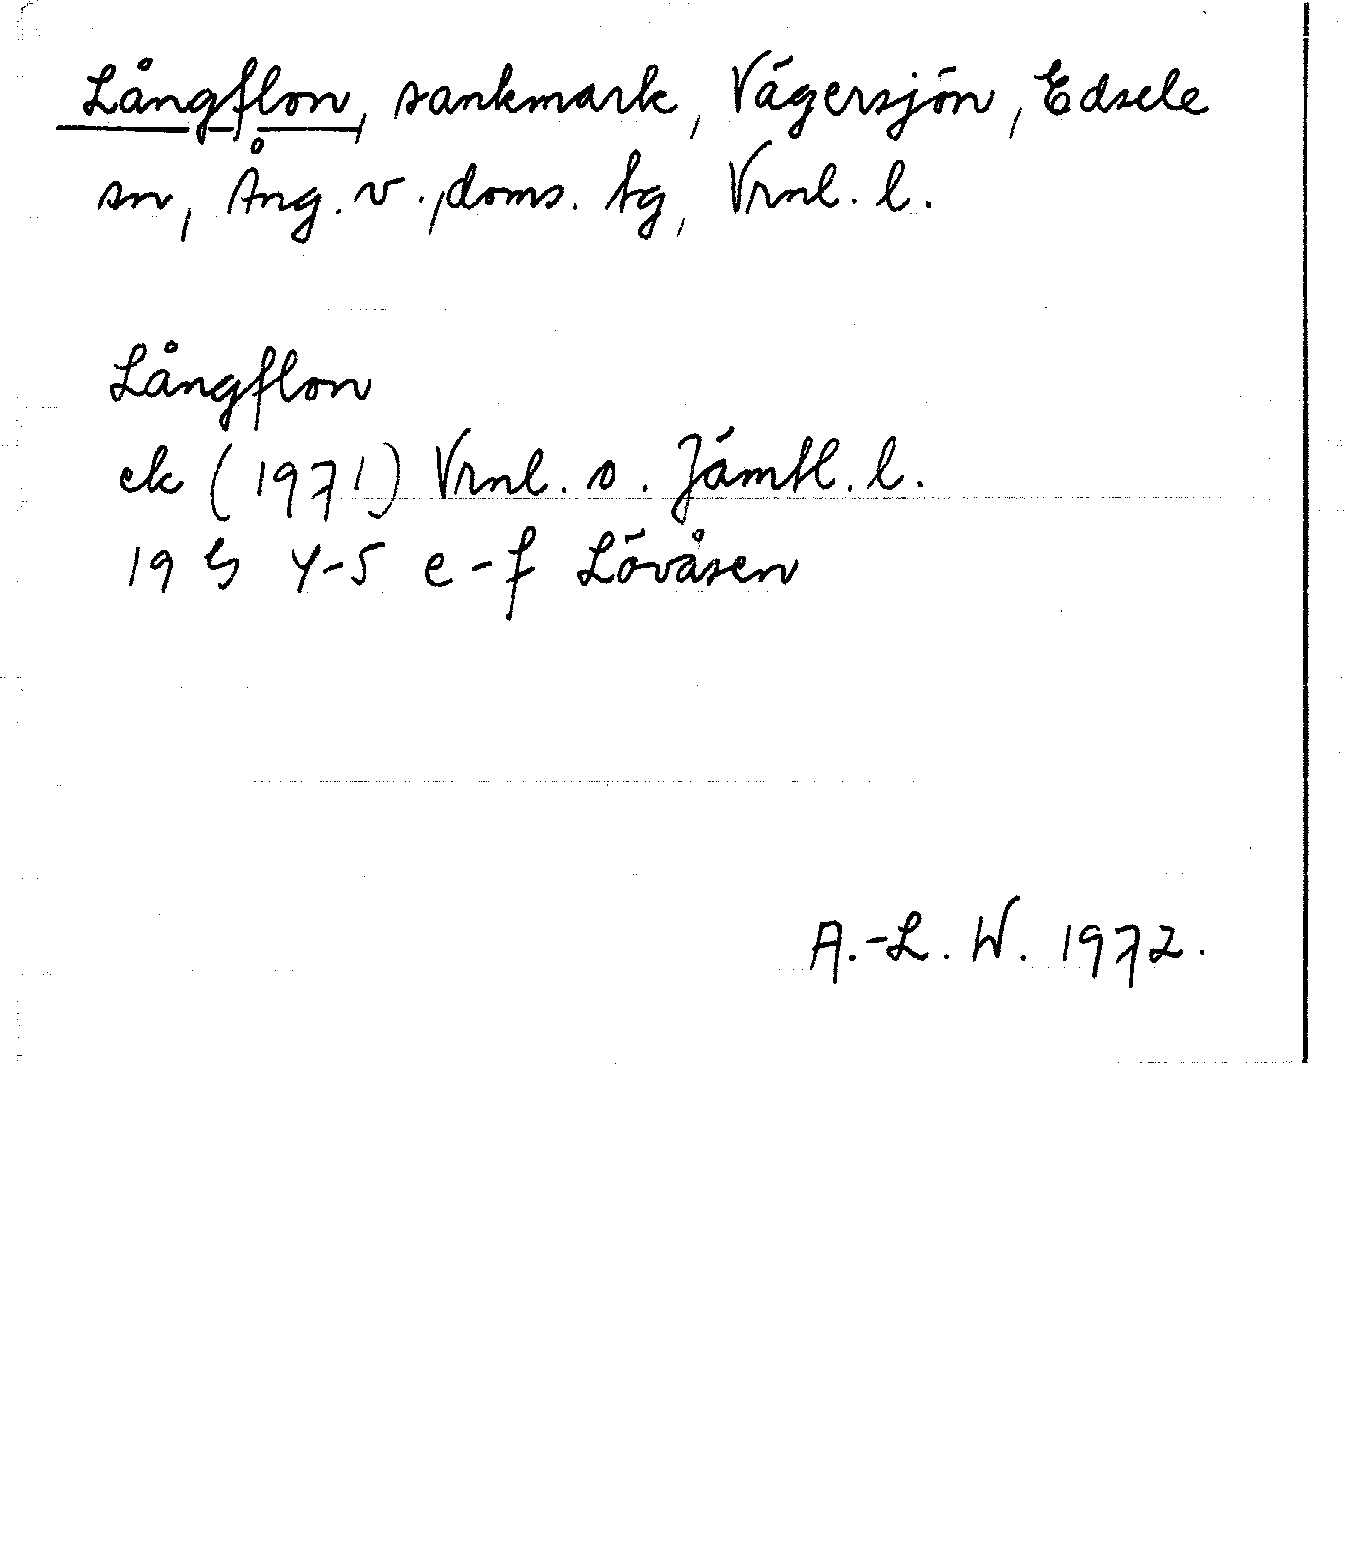 Långflon, sankmark, Vägersjön, Edsele
sn, Ång. v., doms. tg, Vrnl. l.
Långflon
ek (1971) Vrnl. o. Jämtl. l.
19 G 4-5 e-f Lövåsen
A.-L. W. 1972.